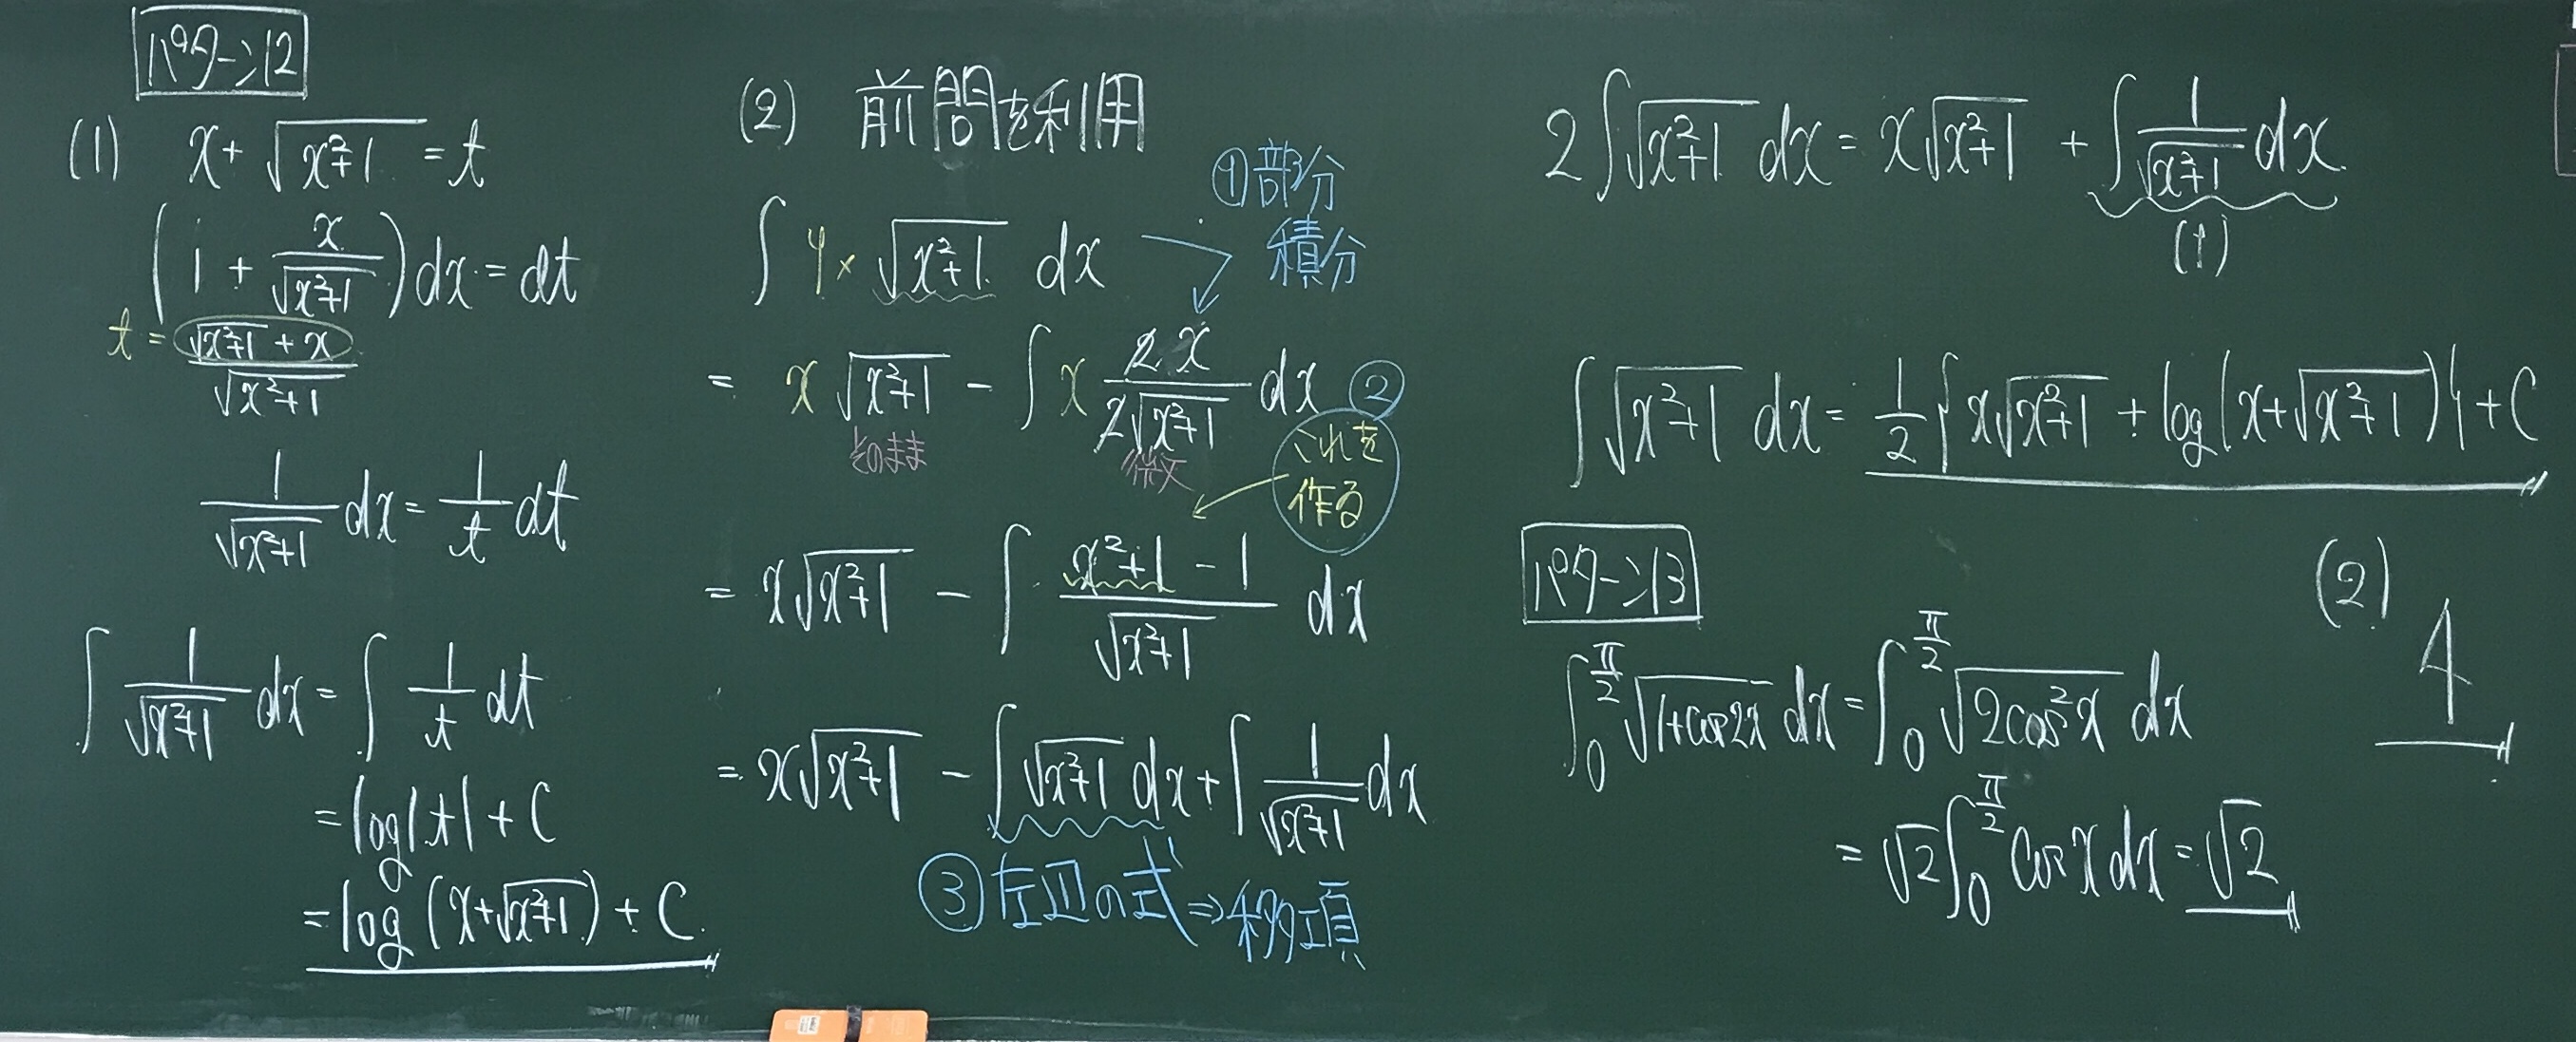 パターン12
(1) x+√(x²+1) = t
(1 + x/√(x²+1))dx = dt
t = (√(x²+1) + x)/√(x²+1)
1/√(x²+1) dx = 1/t dt
∫ 1/√(x²+1) dx = ∫ 1/t dt
= log|t| + C
= log(x+√(x²+1)) + C
(2) 前問を利用
①部分
積分
∫ 1× √(x²+1) dx
= x √(x²+1) - ∫ x 2x/2√(x²+1) dx ②
そのまま 微文
これを
作る
= x√(x²+1) - ∫ (x²+1-1)/√(x²+1) dx
= x√(x²+1) - ∫√(x²+1) dx + ∫ 1/√(x²+1) dx
③左辺の式⇒移項
2∫√(x²+1) dx = x√(x²+1) + ∫ 1/√(x²+1) dx
(1)
∫√(x²+1) dx = 1/2{x√(x²+1) + log(x+√(x²+1))} + C
パターン13
∫₀^(π/2) √(1+cos2x) dx = ∫₀^(π/2) √(2cos²x) dx
= √2∫₀^(π/2) cosx dx = √2
(2)
4